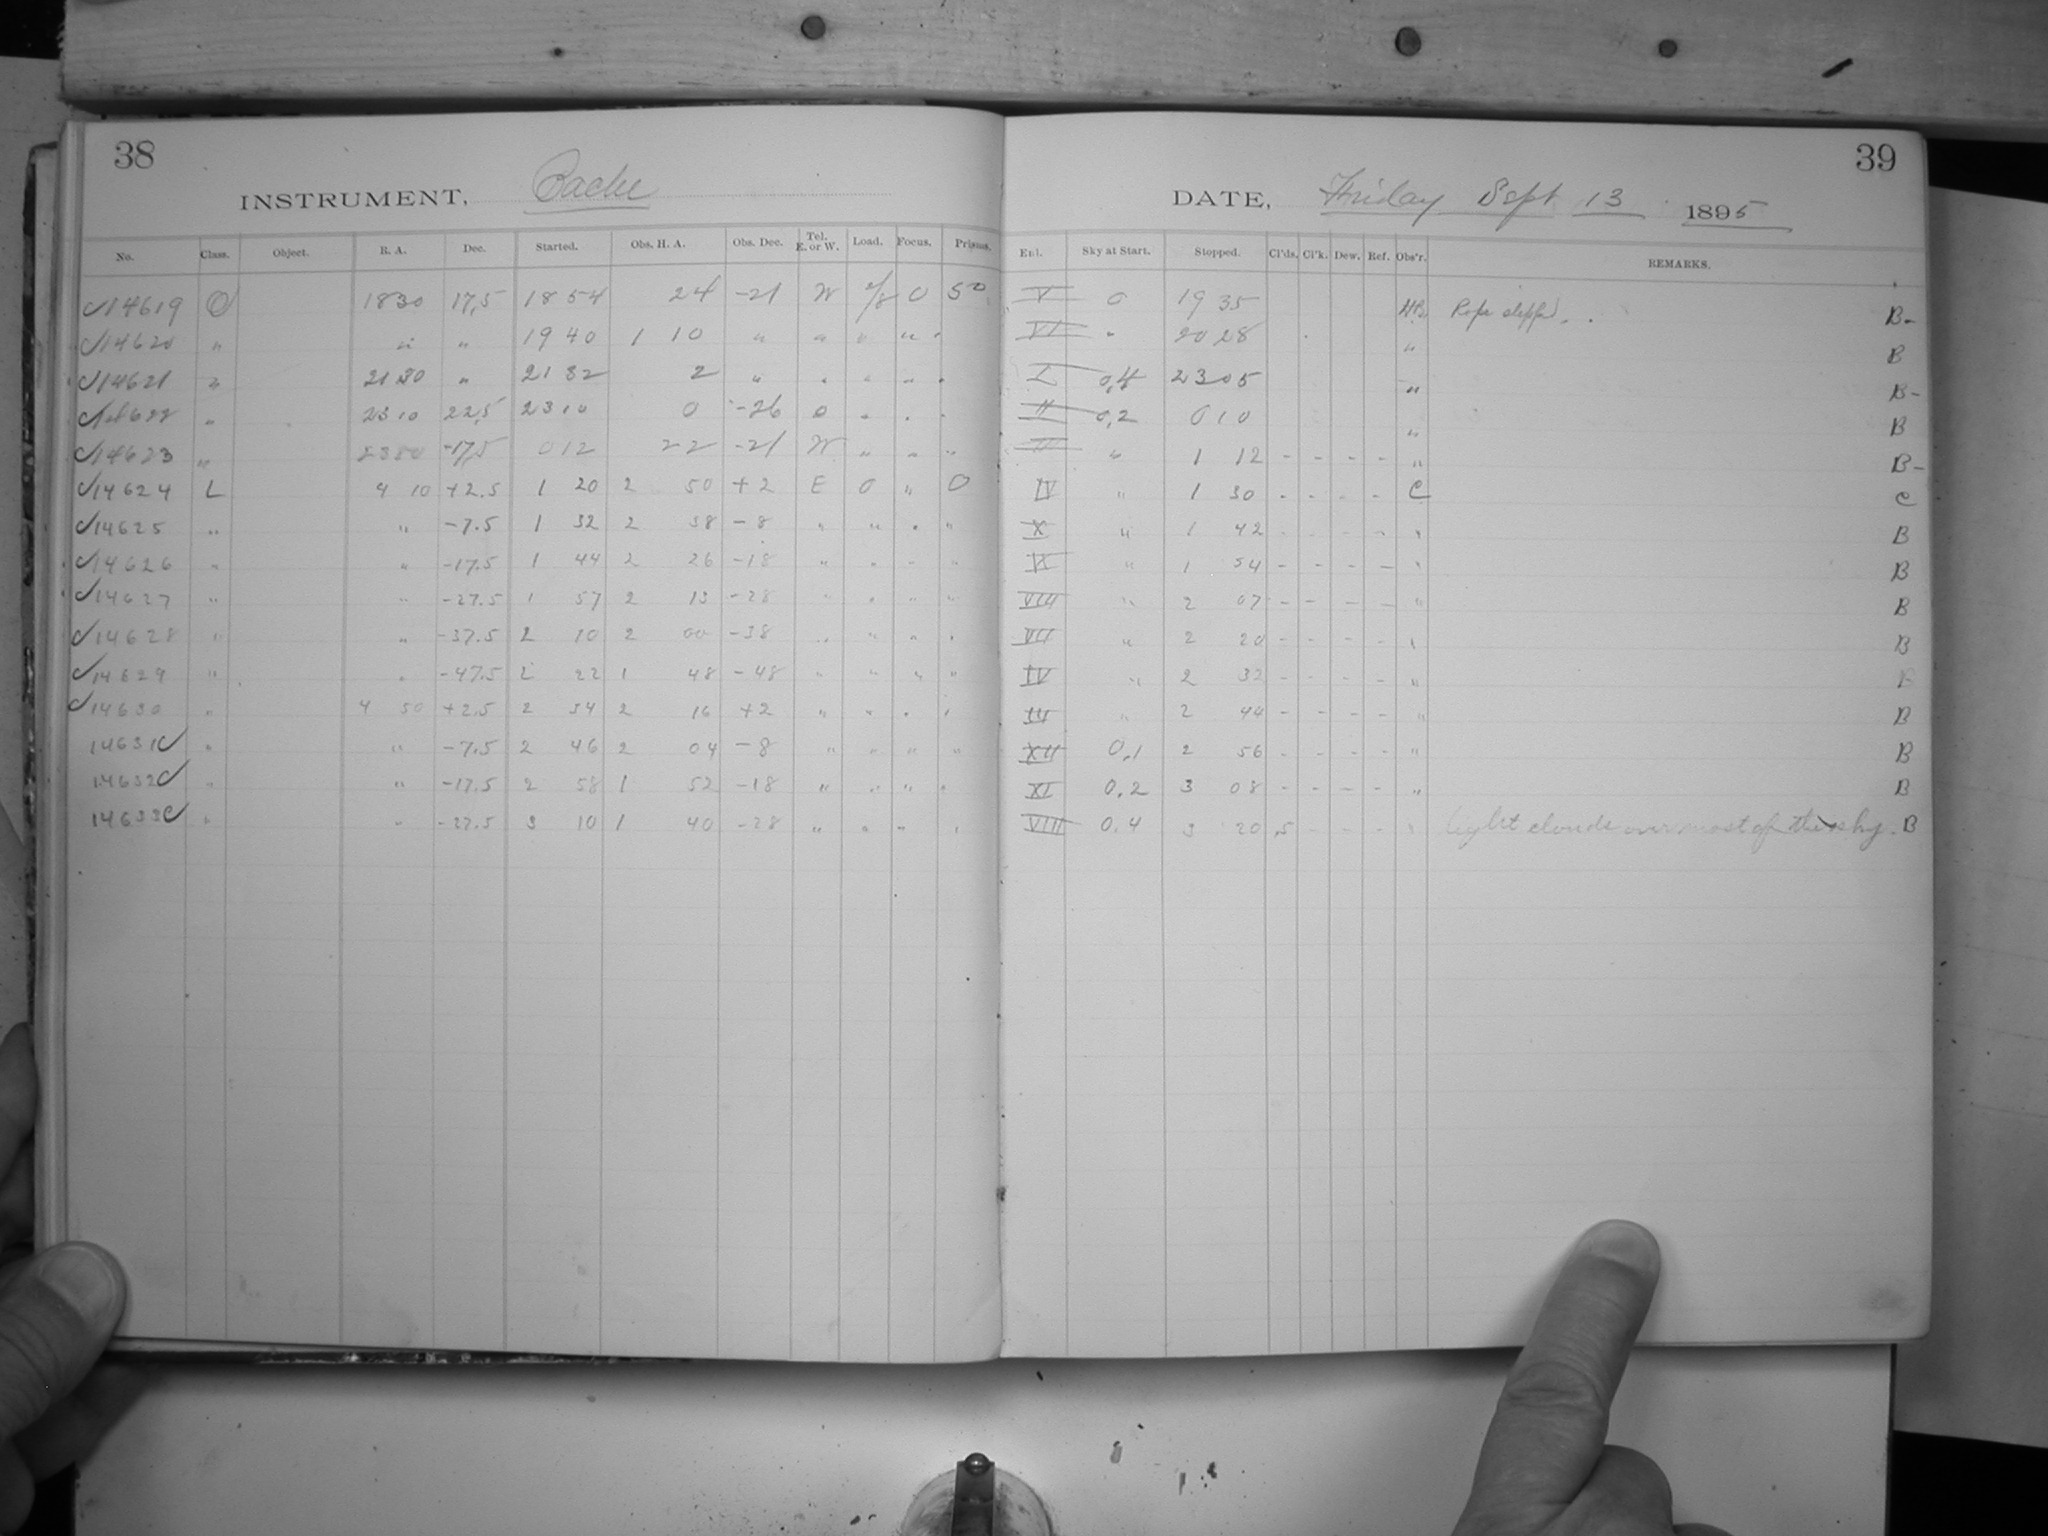 38
INSTRUMENT, Bache
No. Class. Object. R. A. Dec. Started. Obs. H. A. Obs. Dec. Tel. E. or W. Load. Focus. Prisms.
14619 O 18 30 17,5 18 54 24 -21 W 2/8 0 50
14620 " " " 19 40 1 10 " " " " "
14621 " 21 30 " 21 32 2 " " " " "
14622 " 23 10 22,5 23 10 0 -26 0 " " "
14623 " -17,5 0 12 22 -21 W " " "
14624 L 4 10 +2.5 1 20 2 50 +2 E 0 " 0
14625 " " -7.5 1 32 2 38 -8 " " " "
14626 " " -17.5 1 44 2 26 -18 " " " "
14627 " " -27.5 1 57 2 13 -28 " " " "
14628 " " -37.5 2 10 2 00 -38 " " " "
14629 " " -47.5 2 22 1 48 -48 " " " "
14630 " 4 50 +2.5 2 34 2 16 +2 " " " "
14631 " " -7.5 2 46 2 04 -8 " " " "
14632 " " -17.5 2 58 1 52 -18 " " " "
14633 " " -27.5 3 10 1 40 -28 " " " "
39
DATE, Friday Sept 13 1895
Enl. Sky at Start. Stopped. Cl'ds. Cl'k. Dew. Ref. Obs'r. REMARKS.
V 0 19 35 Rope slipped. B-
VI " 20 28 " B
I 0,4 23 05 " B-
II 0,2 0 10 " B
III " 1 12 - - - - " B-
IV " 1 30 - - - - C C
X " 1 42 - - - - " B
" 1 54 - - - - " B
VIII " 2 07 - - - - " B
VII " 2 20 - - - - " B
IV " 2 32 - - - - " B
III " 2 44 - - - - " B
XII 0,1 2 56 - - - - " B
XI 0.2 3 08 - - - - " B
VIII 0.4 3 20 ,5 - - - " light clouds over most of the sky. B